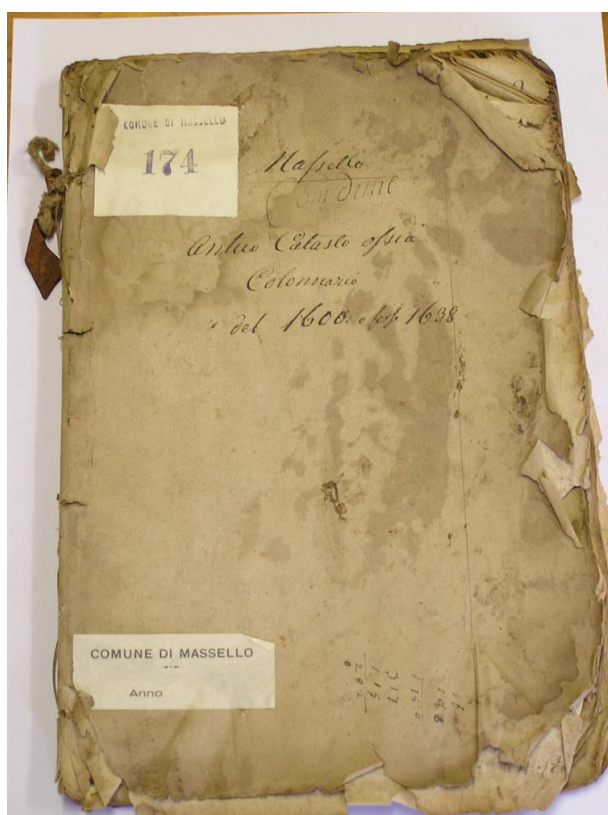 COMUNE DI MASSELLO
174
Massello
Antico Catasto ossia
Colonnario
del 1600 e forse 1638
COMUNE DI MASSELLO
Anno